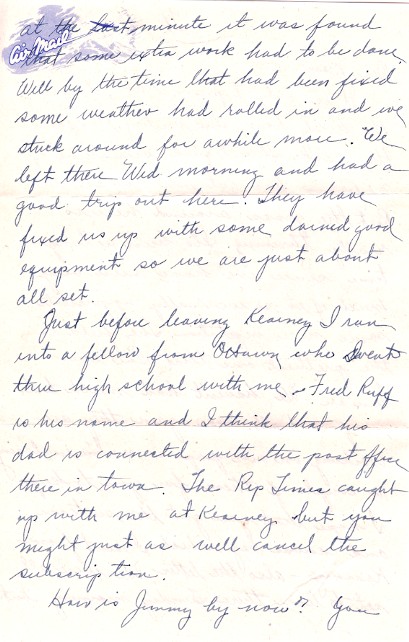 at the last minute it was found
Air Mail
that some extra work had to be done.
Well by the time that had been fixed
some weather had rolled in and we
stuck around for awhile more. We
left there Wed morning and had a
good trip out here. They have
fixed us up with some darned good
equipment so we are just about
all set.
Just before leaving Kearney I ran
into a fellow from Ottawa who went
thru high school with me - Fred Ruff
is his name and I think that his
dad is connected with the post office
there in town. The Rep Times caught
up with me at Kearney but you
might just as well cancel the
subscription.
How is Jimmy by now? You